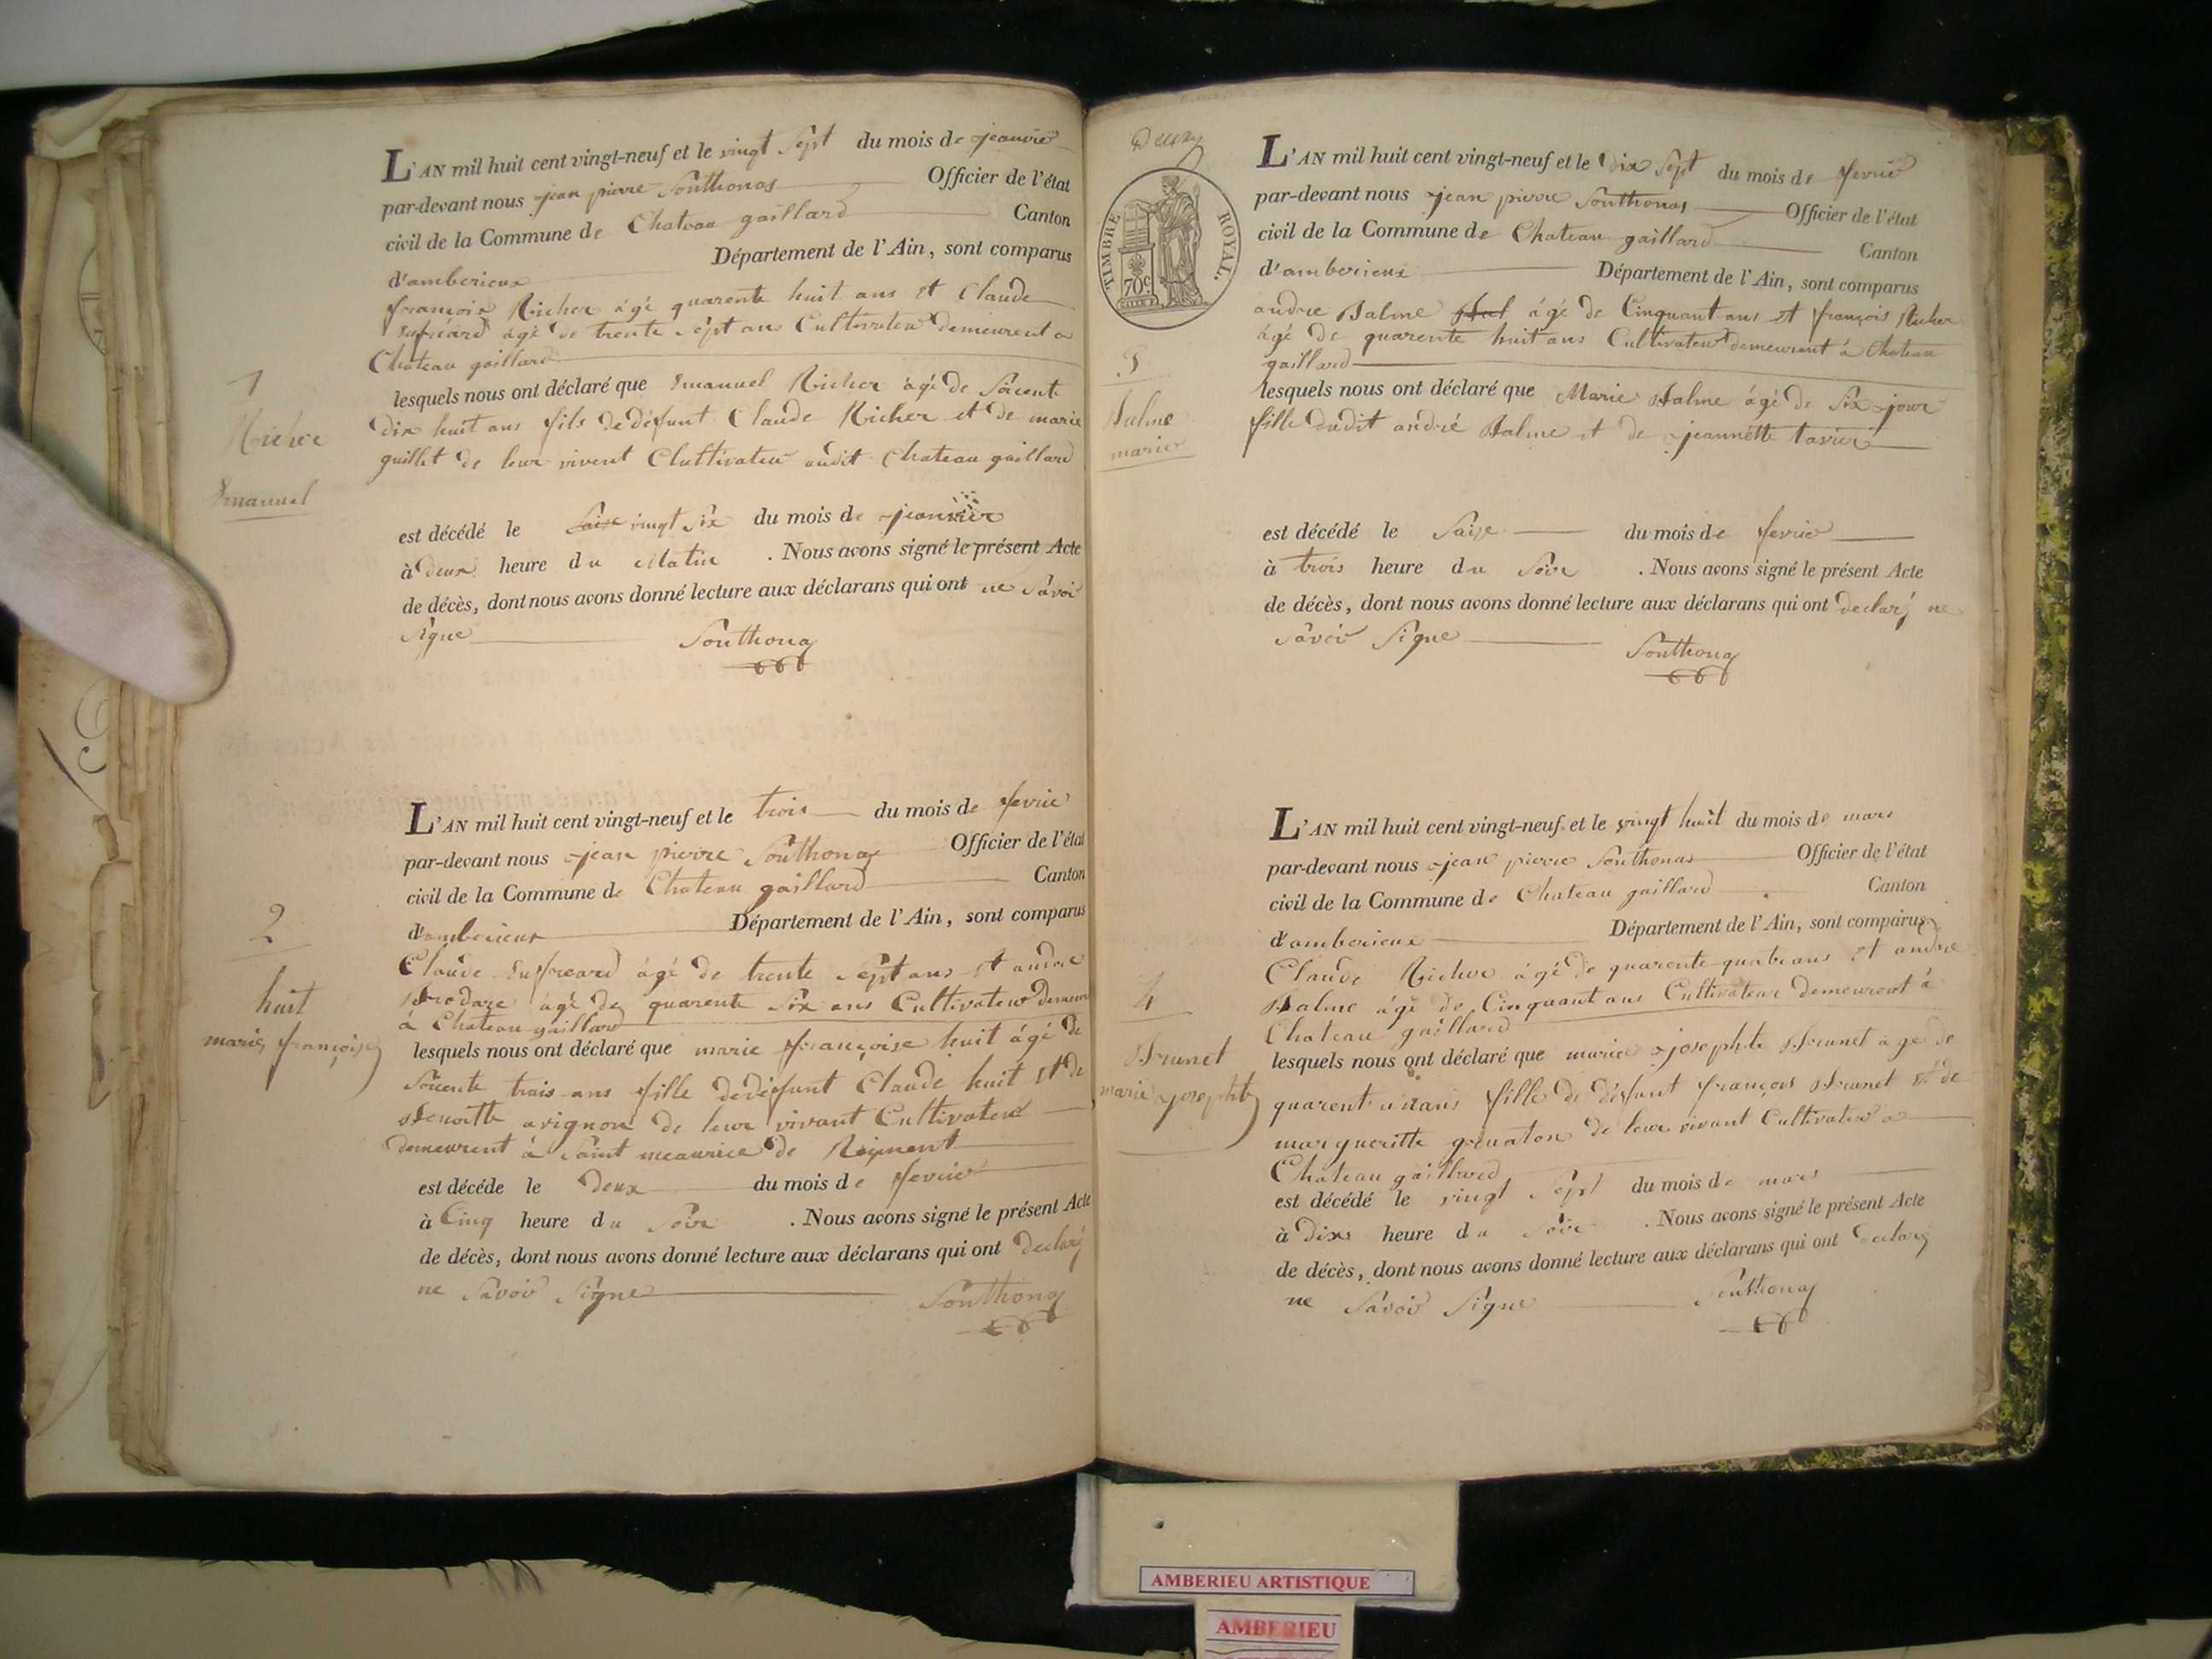 1
Richer
Emanuel
L'AN mil huit cent vingt-neuf et le vingt Sept du mois de jeanvie
par-devant nous jean pierre Southonas Officier de l'état
civil de la Commune de Chateau gaillard Canton
d'amberieux Département de l'Ain, sont comparus
françois Richer âgé quarente huit ans et Claude
âgé de trente Sept ans Cultivateu demeurent a
Chateau gaillard
lesquels nous ont déclaré que Emanuel Richer âgé de Soicente
dix huit ans fils de défunt Claude Richer et de marie
guillet de leur vivent Clultivateu audit Chateau gaillard
est décédé le Saise vingt Six du mois de jeanvier
à deux heure du Matin . Nous avons signé le présent Acte
de décès, dont nous avons donné lecture aux déclarans qui ont ne Savoi
Signe Southonas
2
huit
marie françoise
L'AN mil huit cent vingt-neuf et le trois du mois de fevrie
par-devant nous jean pierre Southonas Officier de l'état
civil de la Commune de Chateau gaillard Canton
d'amberieux Département de l'Ain, sont comparus
Claude âgé de trente Sept ans et andre
Brodare âgé de quarente Six ans Cultivateu Demeure
à Chateau gaillard
lesquels nous ont déclaré que marie françoise huit âgé de
Soicente trais ans fille de défunt Claude huit et de
Benoitte avignon de leur vivant Cultivateu
demeurent à Saint meaurice de Reiment
est décéde le deux du mois de fevrier
à Cinq heure du Soire . Nous avons signé le présent Acte
de décès, dont nous avons donné lecture aux déclarans qui ont declaré
ne Savoir Signe Southonas
TIMBRE ROYAL.
70c
3
Balme
marie
L'AN mil huit cent vingt-neuf et le dix Sept du mois de fevrie
par-devant nous jean pierre Southonas Officier de l'état
civil de la Commune de Chateau gaillard Canton
d'amberieux Département de l'Ain, sont comparus
andre Balme âgé de Cinquant ans et françois Richer
âgé de quarente huit ans Cultivateu demeurent à Chateau
gaillard
lesquels nous ont déclaré que Marie Balme âgé de Six jour
fille dudit andré Balme et de jeannette tavier
est décédé le Saise du mois de fevrie
à trois heure du Soire . Nous avons signé le présent Acte
de décès, dont nous avons donné lecture aux déclarans qui ont declaré ne
Savoir Signe Southonas
4
Brunet
marie josephte
L'AN mil huit cent vingt-neuf et le vingt huit du mois de mars
par-devant nous jean pierre Southonas Officier de l'état
civil de la Commune de Chateau gaillard Canton
d'amberieux Département de l'Ain, sont comparus
Claude Richer âgé de quarente quatre ans et andre
Balme âgé de Cinquant ans Cultivateur demeurent à
Chateau gaillard
lesquels nous ont déclaré que marie josephte Brunet age de
quarent un ans fille de défunt françois Brunet et de
margueritte de leur vivant Cultivateu a
Chateau gaillard
est décédé le vingt Sept du mois de mars
à dixs heure du Soire . Nous avons signé le présent Acte
de décès, dont nous avons donné lecture aux déclarans qui ont declaré
ne Savoir Signe Southonas
AMBERIEU ARTISTIQUE
AMBERIEU